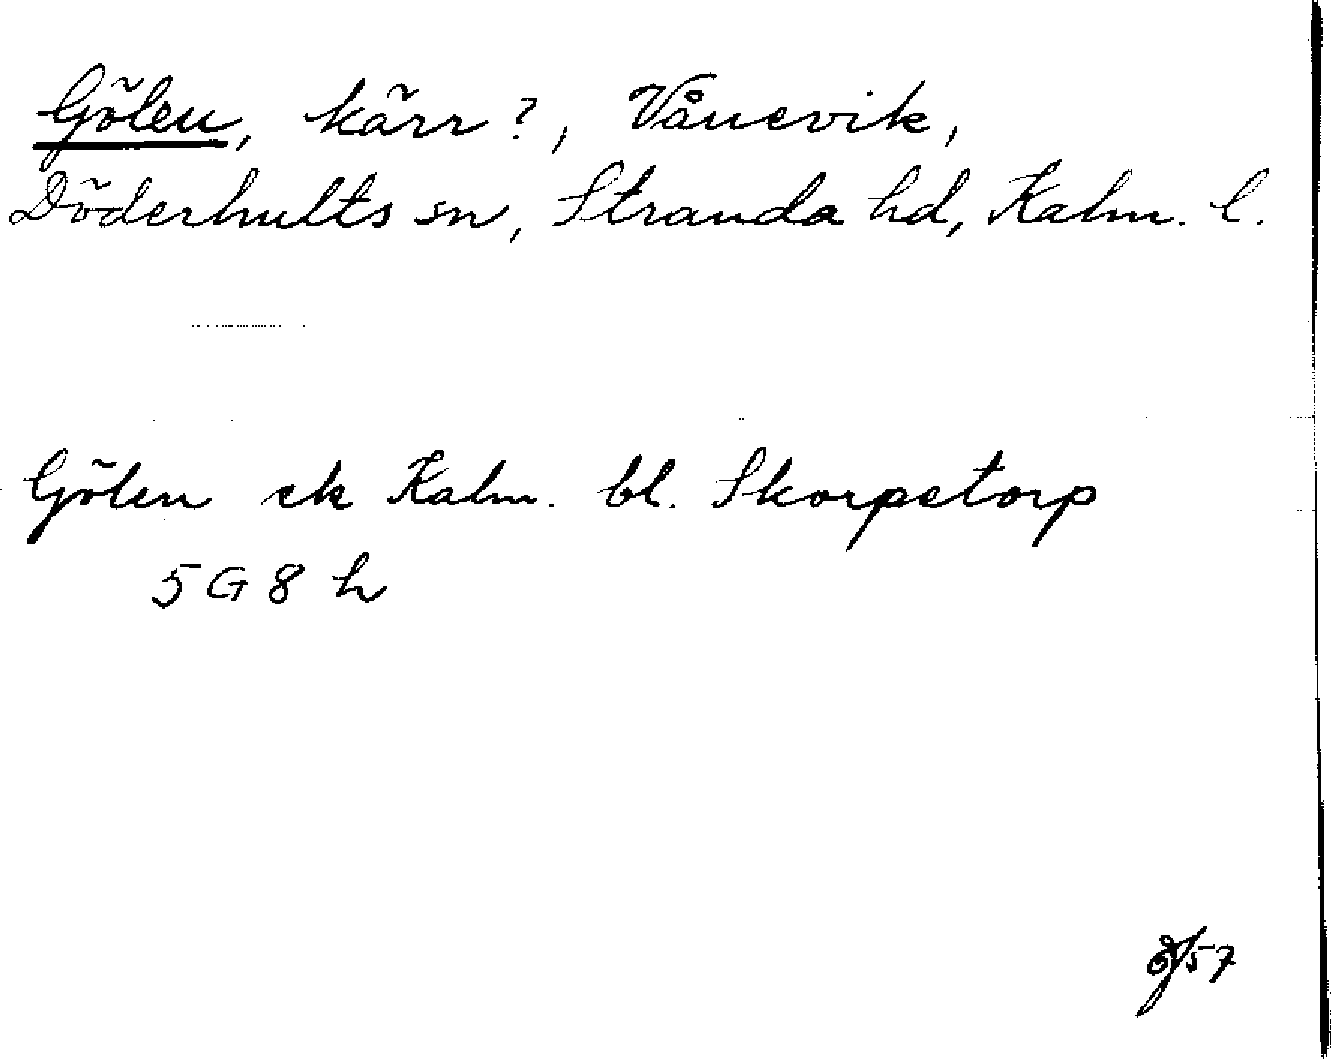 Gölen, kärr?, Vånevik,
Döderhults sn, Stranda hd, Kalm. l.
Gölen ek Kalm. bl. Skorpetorp
5G8h
/57